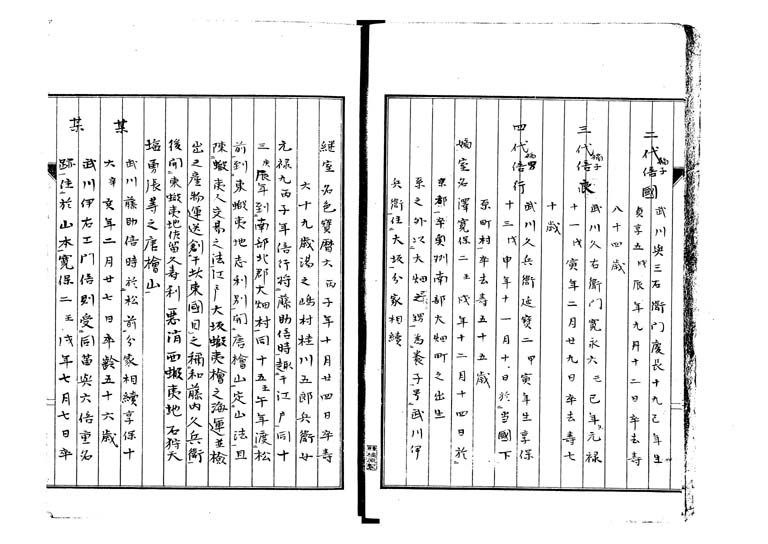 二代倍國 嫡子 武川與三右衞門慶長十九己年生
貞享五戊辰年九月十二日卒去壽
八十四歳
三代倍良 嫡子 武川久右衞門寛永六己年元禄
十一戊寅年二月廿九日卒去壽七
十歳
四代倍行 嫡男 武川久兵衞延寶二甲寅年生享保
十三戊申年十一月十日於當國下
原町村卒去壽五十五歳
嫡室名澤寛保二壬戌年十二月十四日於
京都卒奥州南部大畑町之出生
系之外以大畑之甥為養子号武川伊
兵衞住大坂分家相續
継室名色寶暦六丙子年十月廿四日卒壽
六十九歳湯之嶋村桂川五郎兵衞女
元禄九丙子年倍行将藤助倍時趣于江戸同十
三庚辰年到南部北郡大畑村同十五壬午年渡松
前到東蝦夷地志利別開唐檜山定山法且
陳蝦夷人交易之法江戸大坂蝦夷檜之海運並檢
出之産物運送創于坎東國目之稱和藤内久兵衞
後開東蝦夷地 久壽利 西蝦夷地石狩天
塩勇張等之唐檜山
某 武川藤助倍時於松前分家相續享保十
六辛亥年二月廿七日卒齢五十六歳
某 武川伊右エ門倍則受同苗與六倍重名
跡住於山水寛保二壬戌年七月七日卒